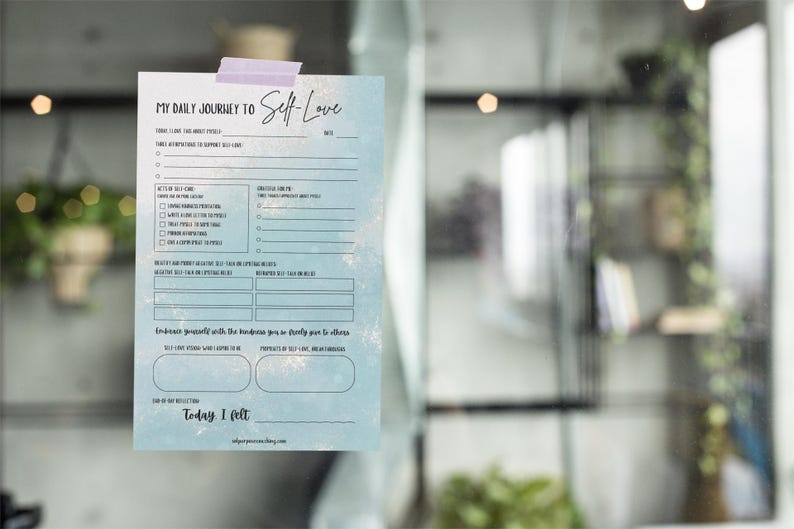 MY DAILY JOURNEY TO Self-Love
TODAY, I LOVE THIS ABOUT MYSELF: DATE
THREE AFFIRMATIONS TO SUPPORT SELF-LOVE:
ACTS OF SELF-CARE:
CHOOSE ONE OR MORE EACH DAY
LOVING KINDNESS MEDITATION
WRITE A LOVE LETTER TO MYSELF
TREAT MYSELF TO SOMETHING
MIRROR AFFIRMATIONS
GIVE A COMPLIMENT TO MYSELF
GRATEFUL FOR ME:
THREE THINGS I APPRECIATE ABOUT MYSELF
IDENTIFY AND MODIFY NEGATIVE SELF-TALK OR LIMITING BELIEFS:
NEGATIVE SELF-TALK OR LIMITING BELIEF REFRAMED SELF-TALK OR BELIEF
Embrace yourself with the kindness you so freely give to others
SELF-LOVE VISION: WHO I ASPIRE TO BE MOMENTS OF SELF-LOVE, BREAKTHROUGHS
END-OF-DAY REFLECTION:
Today, I felt
solpurposecoaching.com